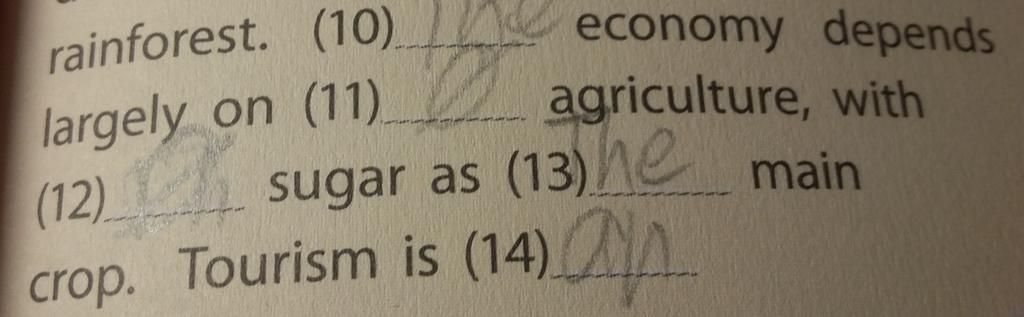 rainforest. (10) The economy depends
largely on (11) Ø agriculture, with
(12) sugar as (13) The main
crop. Tourism is (14) an